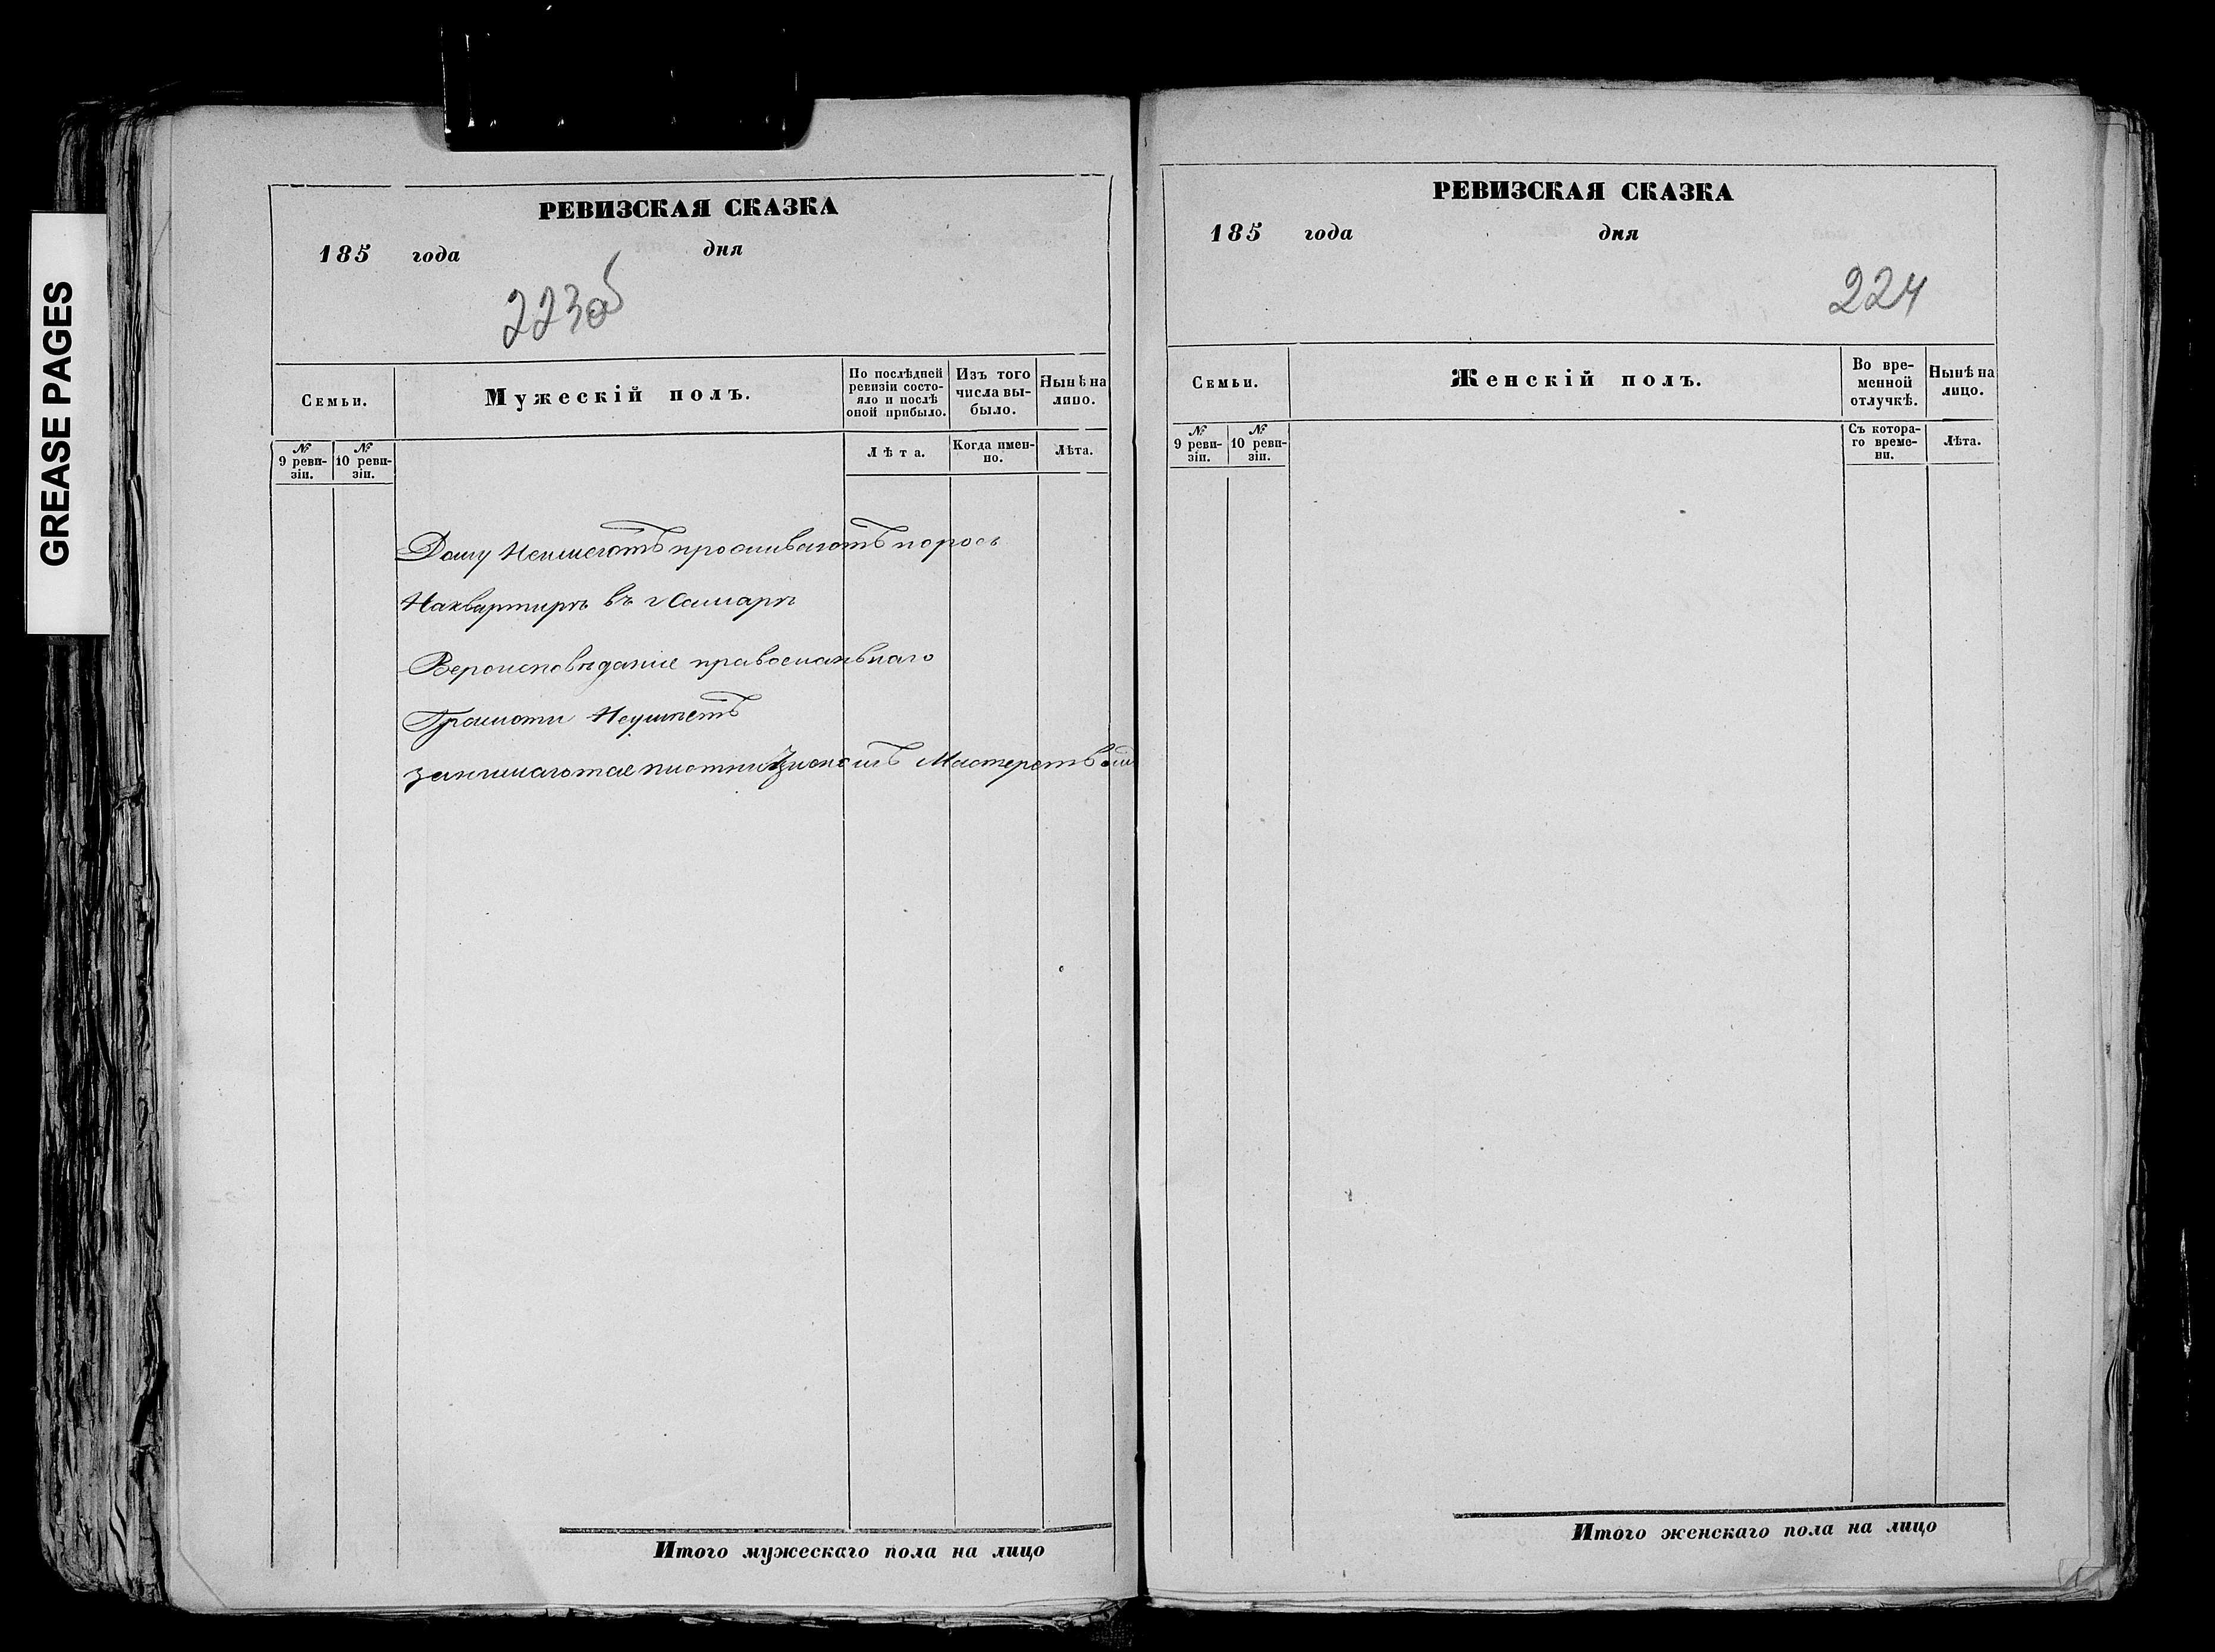 GREASE PAGES
РЕВИЗСКАЯ СКАЗКА
185 года дня
223об
Семьи.
Мужескій полъ.
По послѣдней ревизіи состояло и послѣ оной прибыло.
Изъ того числа выбыло.
Нынѣ на лицо.
№ 9 ревизіи.
№ 10 ревизіи.
Лѣта.
Когда именно.
Лѣта.
Дому Неимеютъ проживаютъ
Наквартирѣ въ г Самарѣ
Вероисповѣдание
Грамоти Неумѣетъ
Мастерством
Итого мужескаго пола на лицо
РЕВИЗСКАЯ СКАЗКА
185 года дня
224
Семьи.
Женскій полъ.
Во временной отлучкѣ.
Нынѣ на лицо.
№ 9 ревизіи.
№ 10 ревизіи.
Съ котораго времени.
Лѣта.
Итого женскаго пола на лицо